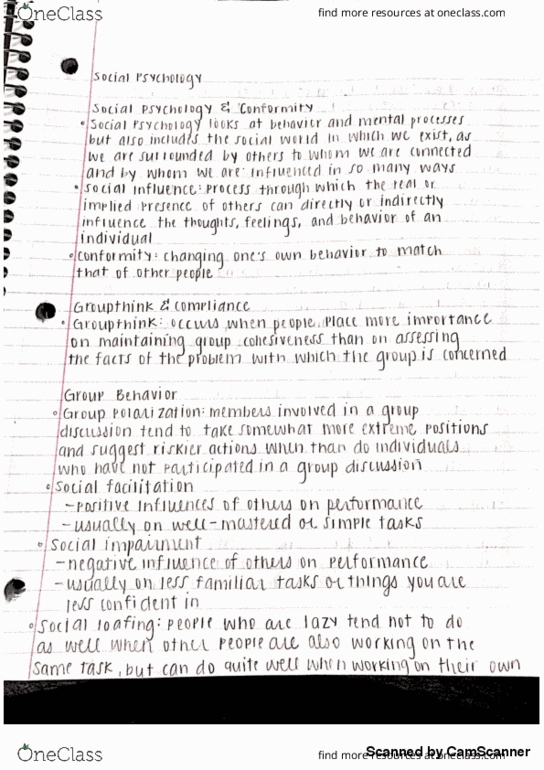 OneClass
find more resources at oneclass.com
Social Psychology
Social Psychology & Conformity
• Social Psychology looks at behavior and mental processes
but also includes the social world in which we exist, as
we are surrounded by others to whom we are connected
and by whom we are influenced in so many ways
• Social influence: process through which the real or
implied presence of others can directly or indirectly
influence the thoughts, feelings, and behavior of an
individual
• Conformity: changing one's own behavior to match
that of other people
Groupthink & Compliance
• Groupthink: occurs when people place more importance
on maintaining group cohesiveness than on assessing
the facts of the problem with which the group is concerned
Group Behavior
• Group polarization: members involved in a group
discussion tend to take somewhat more extreme positions
and suggest riskier actions when than do individuals
who have not participated in a group discussion
• Social facilitation
- positive influences of others on performance
- usually on well-mastered or simple tasks
• Social impairment
- negative influence of others on performance
- usually on less familiar tasks or things you are
less confident in
• Social loafing: people who are lazy tend not to do
as well when other people are also working on the
same task, but can do quite well when working on their own
OneClass
find more resources at oneclass.com
Scanned by CamScanner